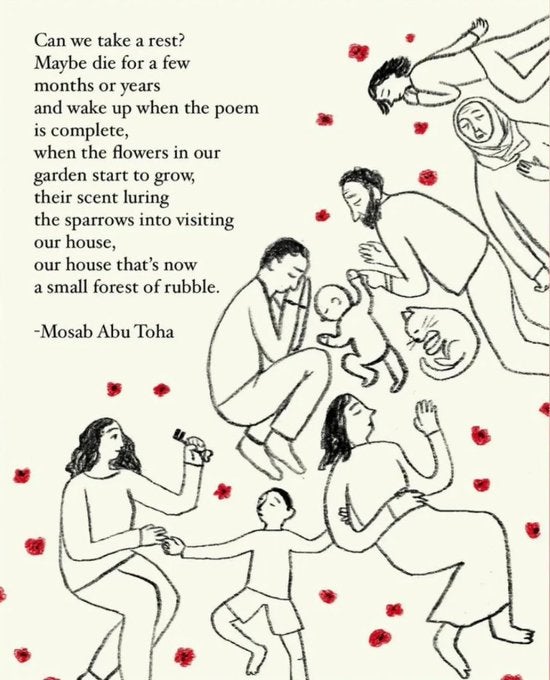 Can we take a rest?
Maybe die for a few
months or years
and wake up when the poem
is complete,
when the flowers in our
garden start to grow,
their scent luring
the sparrows into visiting
our house,
our house that's now
a small forest of rubble.
-Mosab Abu Toha